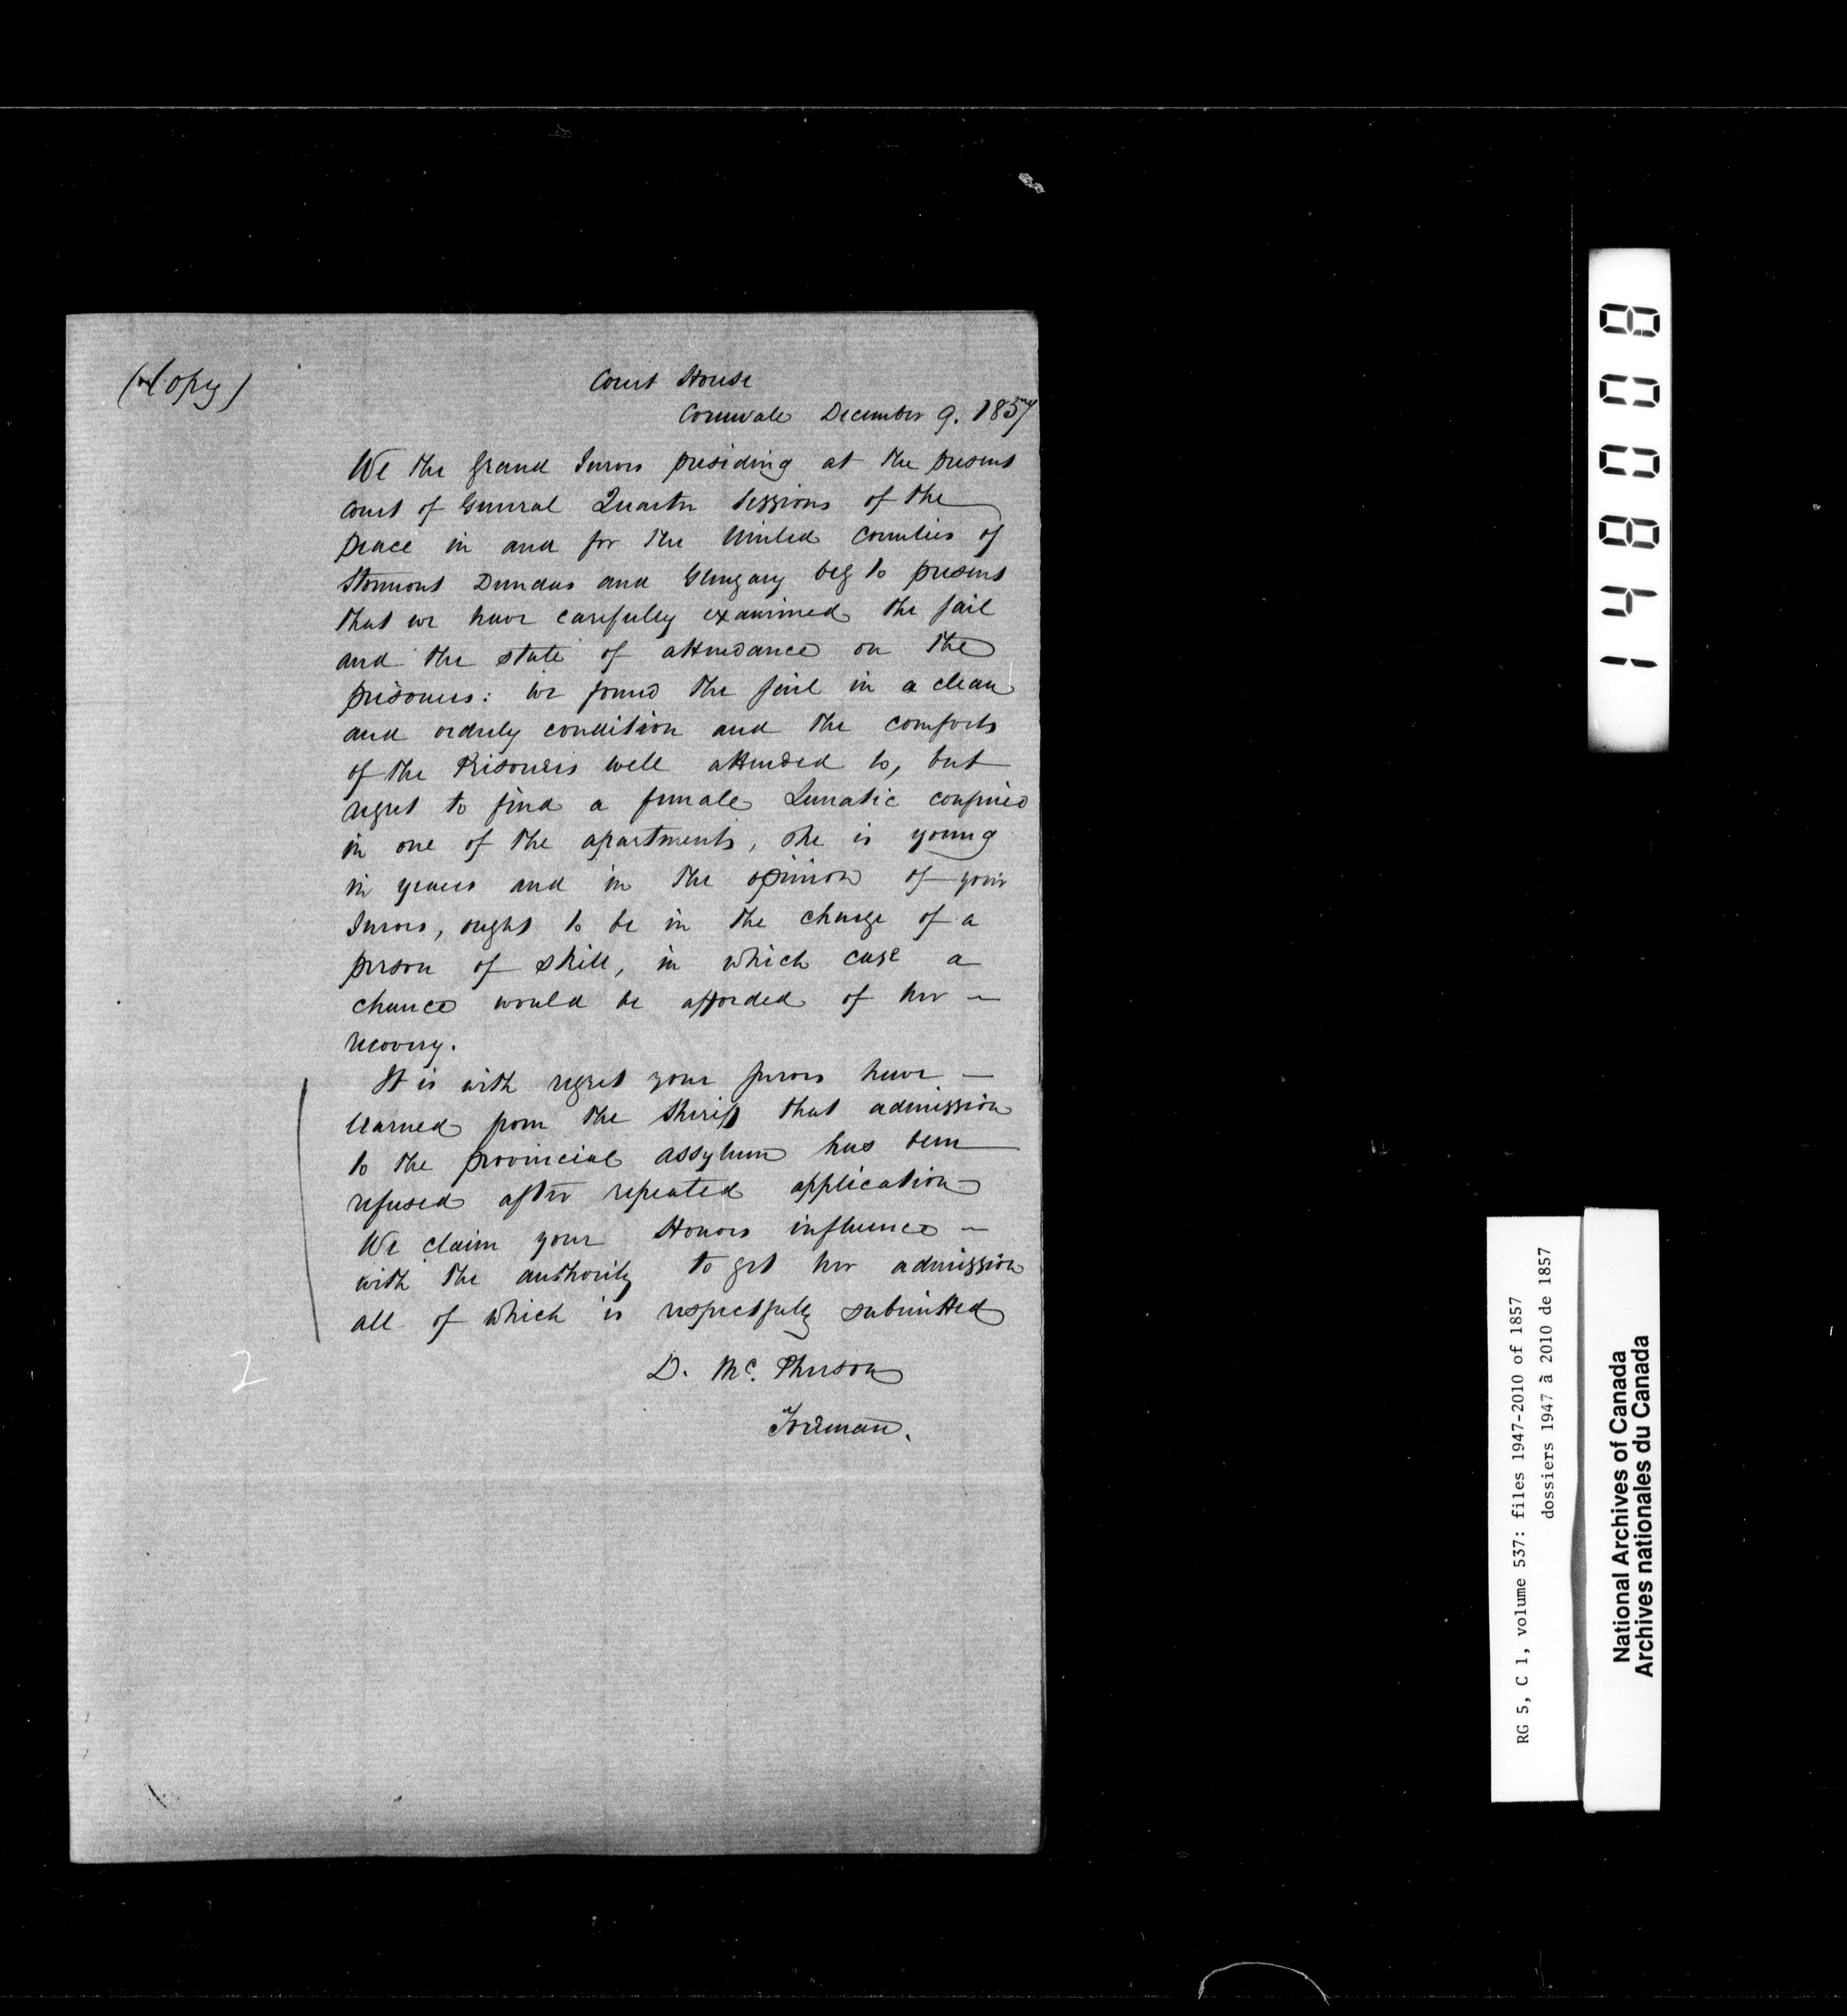 (Copy)
Court House
Cornwale December 9. 1857
We the Grand Jurors presiding at the present
court of General Quarter Sessions of the
peace in and for the United Counties of
Stormont Dundas and Glengary beg to present
that we have carefully examined the jail
and the state of attendance on the
prisoners: we found the jail in a clean
and orderly condition and the comforts
of the Prisoners well attended to, but
regret to find a female Lunatic confined
in one of the apartments, she is young
in years and in the opinion of your
Jurors, ought to be in the charge of a
person of skill, in which case a
chance would be afforded of her –
recovery.
It is with regret your jurors have –
learned from the Sheriff that admission
to the provincial assylum has been
refused after repeated application
We claim your Honors influence –
with the authority to get her admission
all of which is respectfully submitted
D. Mc. Pherson
Foreman.
2
148008
RG 5, C 1, volume 537: files 1947-2010 of 1857
dossiers 1947 à 2010 de 1857
National Archives of Canada
Archives nationales du Canada